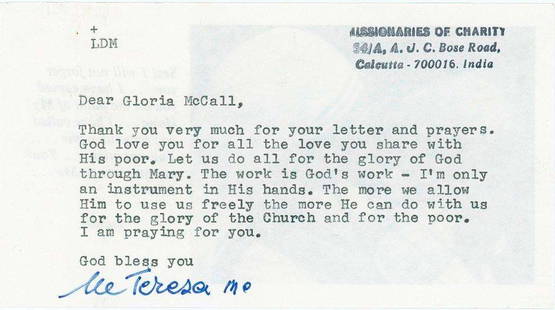 +
LDM
MISSIONARIES OF CHARITY
54/A, A. J. C. Bose Road,
Calcutta - 700016. India
Dear Gloria McCall,
Thank you very much for your letter and prayers.
God love you for all the love you share with
His poor. Let us do all for the glory of God
through Mary. The work is God's work - I'm only
an instrument in His hands. The more we allow
Him to use us freely the more He can do with us
for the glory of the Church and for the poor.
I am praying for you.
God bless you
Me Teresa mc